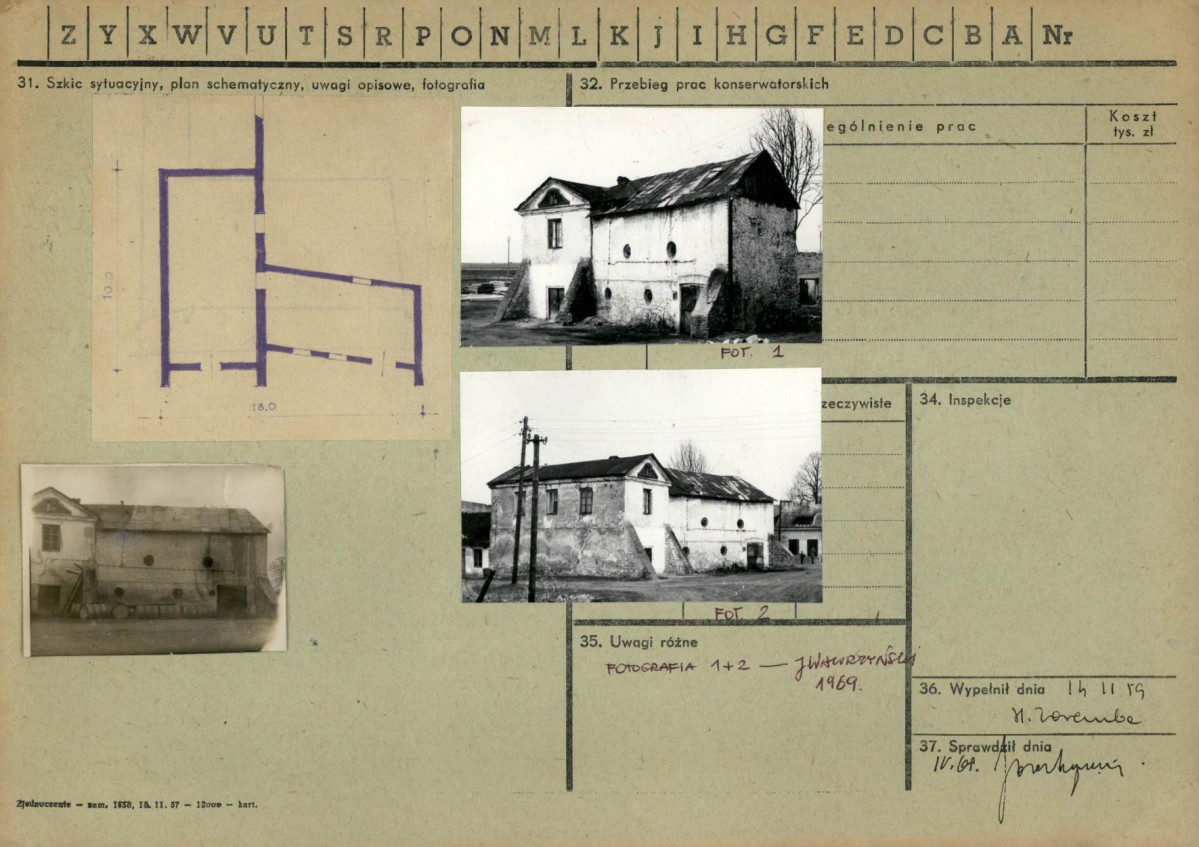 Z Y X W V U T S R P O N M L K J I H G F E D C B A Nr
31. Szkic sytuacyjny, plan schematyczny, uwagi opisowe, fotografia
32. Przebieg prac konserwatorskich
ególnienie prac
Koszt
tys. zł
10.0
13.0
FOT. 1
zeczywiste
34. Inspekcje
FOT. 2
35. Uwagi różne
FOTOGRAFIA 1+2 — J WAWRZYŃSKI
1969.
36. Wypełnił dnia
H. Zaremba
37. Sprawdził dnia
IV.69.
Zjednoczenie — zam. 1858, 18. 11. 57 — 12000 — kart.